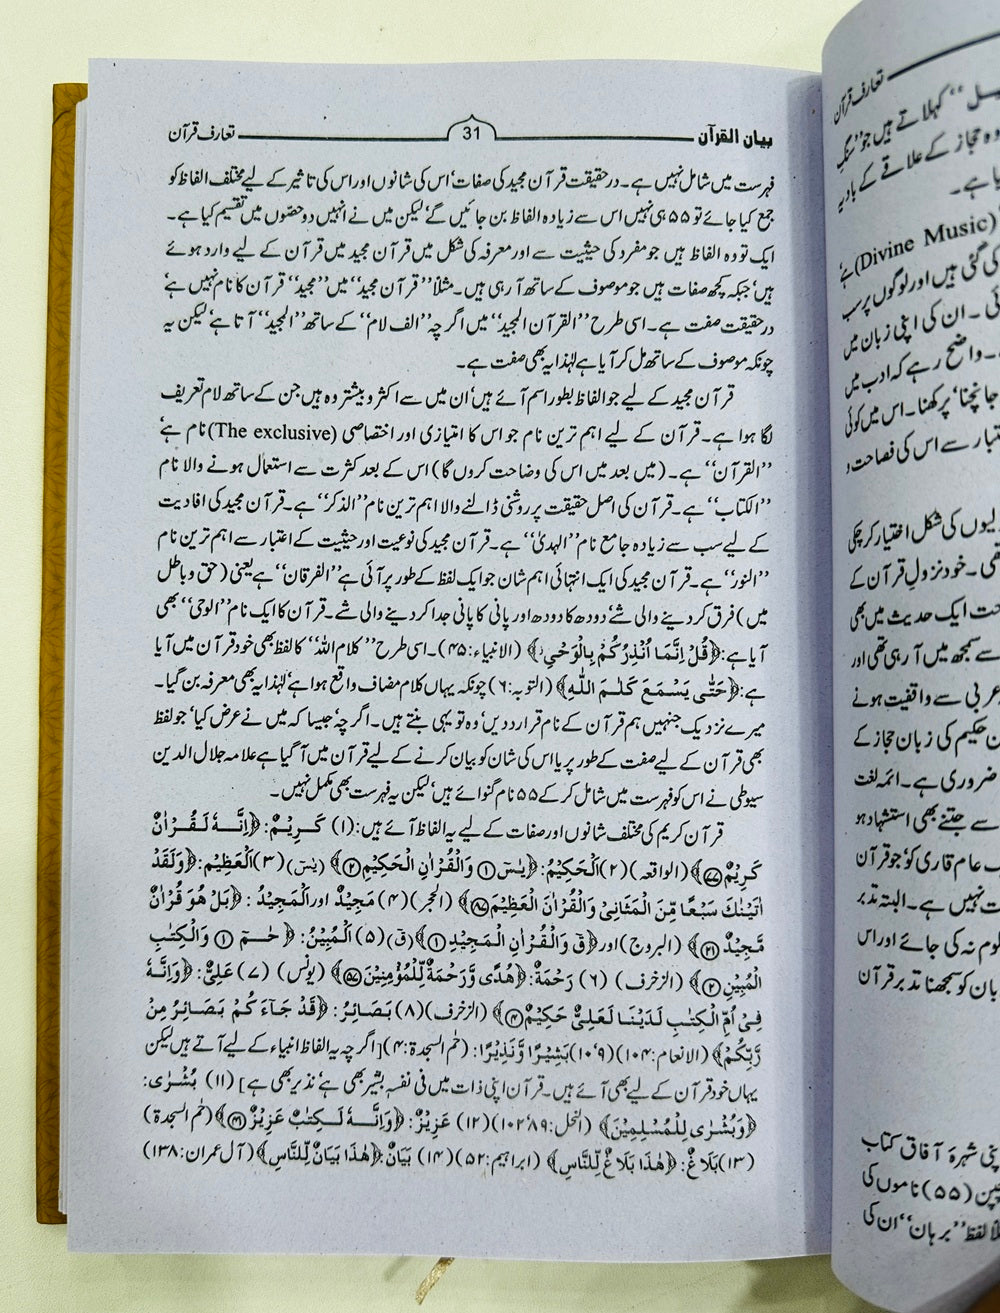 بیان القرآن 31 تعارف قرآن
فہرست میں شامل نہیں ہے۔ درحقیقت قرآن مجید کی صفات‘ اس کی شانوں اور اس کی تاثیر کے لیے مختلف الفاظ کو
جمع کیا جائے تو ۵۵ ہی نہیں اس سے زیادہ الفاظ بن جائیں گے‘ لیکن میں نے انہیں دو حصّوں میں تقسیم کیا ہے۔
ایک تو وہ الفاظ ہیں جو مفرد کی حیثیت سے اور معرفہ کی شکل میں قرآن مجید میں قرآن کے لیے وارد ہوئے
ہیں‘ جبکہ کچھ صفات ہیں جو موصوف کے ساتھ آ رہی ہیں۔ مثلاً ’’قرآن مجید‘‘ میں ’’مجید‘‘ قرآن کا نام نہیں ہے
درحقیقت صفت ہے۔ اسی طرح ’’القرآن المجید‘‘ میں اگرچہ ’’الف لام‘‘ کے ساتھ ’’المجید‘‘ آتا ہے‘ لیکن یہ
چونکہ موصوف کے ساتھ مل کر آیا ہے لہٰذا یہ بھی صفت ہے۔
قرآن مجید کے لیے جو الفاظ بطور اسم آئے ہیں‘ ان میں سے اکثر و بیشتر وہ ہیں جن کے ساتھ لام تعریف
لگا ہوا ہے۔ قرآن کے لیے اہم ترین نام جو اس کا امتیازی اور اختصاصی (The exclusive) نام ہے‘
’’القرآن‘‘ ہے۔ (میں بعد میں اس کی وضاحت کروں گا) اس کے بعد کثرت سے استعمال ہونے والا نام
’’الکتاب‘‘ ہے۔ قرآن کی اصل حقیقت پر روشنی ڈالنے والا اہم ترین نام ’’الذکر‘‘ ہے۔ قرآن مجید کی افادیت
کے لیے سب سے زیادہ جامع نام ’’الہدیٰ‘‘ ہے۔ قرآن مجید کی نوعیت اور حیثیت کے اعتبار سے اہم ترین نام
’’النور‘‘ ہے۔ قرآن مجید کی ایک انتہائی اہم شان جو ایک لفظ کے طور پر آئی ہے ’’الفرقان‘‘ ہے یعنی (حق و باطل
میں) فرق کر دینے والی شے‘ دودھ کا دودھ اور پانی کا پانی جدا کر دینے والی شے۔ قرآن کا ایک نام ’’الوحی‘‘ بھی
آیا ہے: ﴿قُلْ اِنَّمَآ اُنْذِرُكُمْ بِالْوَحْیِ﴾ (الانبیاء:۴۵)۔ اسی طرح ’’کلام اللہ‘‘ کا لفظ بھی خود قرآن میں آیا
ہے: ﴿حَتّٰى یَسْمَعَ كَلٰمَ اللّٰهِ﴾ (التوبہ:۶) چونکہ یہاں کلام مضاف واقع ہوا ہے‘ لہٰذا یہ بھی معرفہ بن گیا۔
میرے نزدیک جنہیں ہم قرآن کے نام قرار دیں‘ وہ تو یہی بنتے ہیں۔ اگرچہ‘ جیسا کہ میں نے عرض کیا‘ جو لفظ
بھی قرآن کے لیے صفت کے طور پر یا اس کی شان کو بیان کرنے کے لیے قرآن میں آ گیا ہے علامہ جلال الدین
سیوطی نے اس کو فہرست میں شامل کر کے ۵۵ نام گنوائے ہیں‘ لیکن یہ فہرست بھی مکمل نہیں۔
قرآن کریم کی مختلف شانوں اور صفات کے لیے یہ الفاظ آئے ہیں: (۱) كَرِیْمٌ: ﴿اِنَّهٗ لَقُرْاٰنٌ
كَرِیْمٌ ﴿۷۷﴾﴾ (الواقعہ) (۲) اَلْحَكِیْمُ: ﴿یٰسٓ ﴿۱﴾ وَالْقُرْاٰنِ الْحَكِیْمِ ﴿۲﴾﴾ (یٰسٓ) (۳) اَلْعَظِیْمِ: ﴿وَلَقَدْ
اٰتَیْنٰكَ سَبْعًا مِّنَ الْمَثَانِیْ وَالْقُرْاٰنَ الْعَظِیْمَ ﴿۸۷﴾﴾ (الحجر) (۴) مَجِیْدٌ اور اَلْمَجِیْدُ: ﴿بَلْ هُوَ قُرْاٰنٌ
مَّجِیْدٌ ﴿۲۱﴾﴾ (البروج) اور ﴿قٓ وَالْقُرْاٰنِ الْمَجِیْدِ ﴿۱﴾﴾ (قٓ) (۵) اَلْمُبِیْنُ: ﴿حٰمٓ ﴿۱﴾ وَالْكِتٰبِ
الْمُبِیْنِ ﴿۲﴾﴾ (الزخرف) (۶) رَحْمَةٌ: ﴿هُدًى وَّرَحْمَةٌ لِّلْمُؤْمِنِیْنَ ﴿۵۷﴾﴾ (یونس) (۷) عَلِیٌّ: ﴿وَاِنَّهٗ
فِیْٓ اُمِّ الْكِتٰبِ لَدَیْنَا لَعَلِیٌّ حَكِیْمٌ ﴿۴﴾﴾ (الزخرف) (۸) بَصَآئِرُ: ﴿قَدْ جَآءَكُمْ بَصَآئِرُ مِنْ
رَّبِّكُمْ﴾ (الانعام:۱۰۴) (۹‘۱۰) بَشِیْرًا وَّنَذِیْرًا: (حٰمٓ السجدۃ:۴) [اگرچہ یہ الفاظ انبیاء کے لیے آتے ہیں لیکن
یہاں خود قرآن کے لیے بھی آئے ہیں۔ قرآن اپنی ذات میں فی نفسہٖ بشیر بھی ہے‘ نذیر بھی ہے] (۱۱) بُشْرٰى:
﴿وَبُشْرٰى لِلْمُسْلِمِیْنَ﴾ (النحل:۸۹‘۱۰۲) (۱۲) عَزِیْزٌ: ﴿وَاِنَّهٗ لَكِتٰبٌ عَزِیْزٌ ﴿۴۱﴾﴾ (حٰمٓ السجدۃ)
(۱۳) بَلَاغٌ: ﴿هٰذَا بَلَاغٌ لِّلنَّاسِ﴾ (ابراہیم:۵۲) (۱۴) بَیَانٌ: ﴿هٰذَا بَیَانٌ لِّلنَّاسِ﴾ (آل عمران:۱۳۸)
تعارف قرآن
کہلاتے ہیں جو ’’سنگِ
وہ حجاز کے علاقے کے بادیہ
(Divine Music) ہے
کی گئی ہیں اور لوگوں پر سب
ان کی اپنی زبان میں
واضح رہے کہ ادب میں
جانچنا‘ پرکھنا۔ اس میں کوئی
سے اس کی فصاحت و
کی شکل اختیار کر چکی
تھی۔ خود نزولِ قرآن کے
ایک حدیث میں بھی
سے سمجھ میں آ رہی تھی اور
عربی سے واقفیت ہونے
حکیم کی زبان حجاز کے
ضروری ہے۔ ائمہ لغت
سے جتنے بھی استشہاد ہو
عام قاری کو‘ جو قرآن
نہیں ہے۔ البتہ تدبر
نہ کی جائے اور اس
کو سمجھنا تدبر قرآن
شہرۂ آفاق کتاب
(۵۵) ناموں کی
لفظ ’’برہان‘‘ ان کی